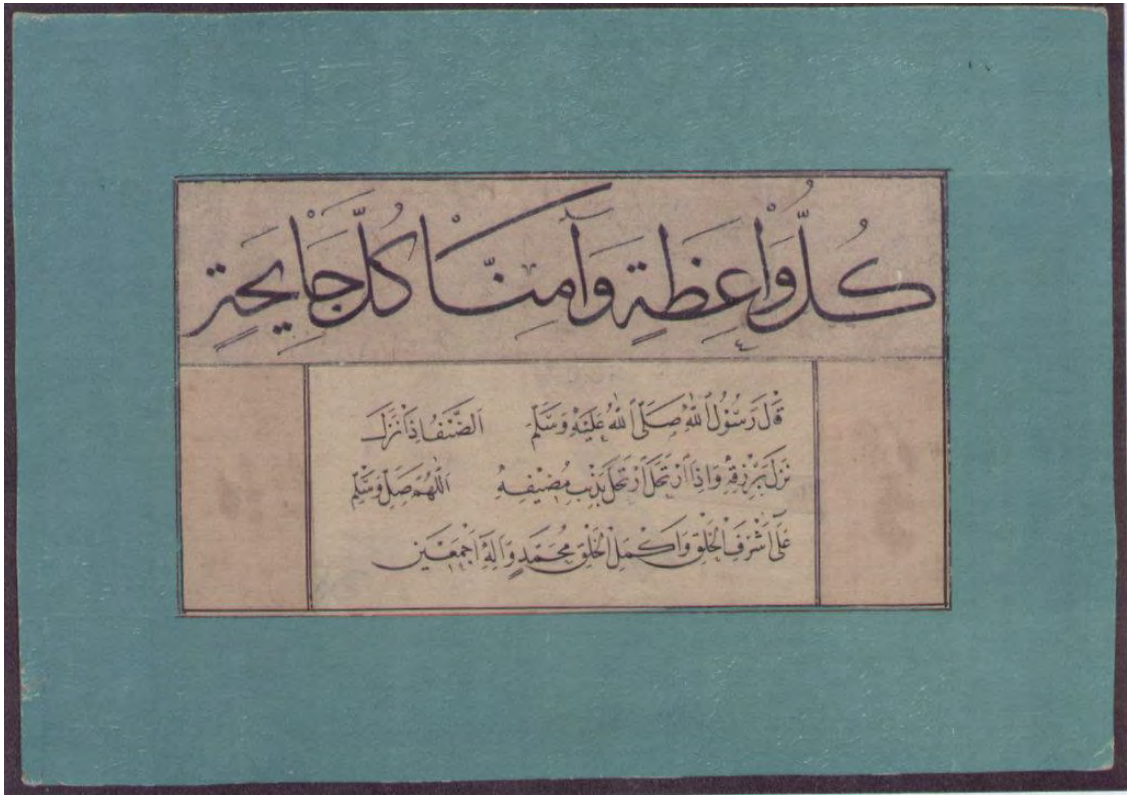 كُلُّ وَاعِظَةٍ وَآمِنَّا كُلَّ جَايِحَةٍ
قَالَ رَسُولُ اللّٰهِ صَلَّى اللّٰهُ عَلَيْهِ وَسَلَّمَ اَلضَّيْفُ اِذَا نَزَلَ
نَزَلَ بِرِزْقِهِ وَاِذَا ارْتَحَلَ ارْتَحَلَ بِذَنْبِ مُضِيفِهِ اَللّٰهُمَّ صَلِّ وَسَلِّمْ
عَلَى اَشْرَفِ الْخَلْقِ وَاَكْمَلِ الْخَلْقِ مُحَمَّدٍ وَآلِهِ اَجْمَعِينَ